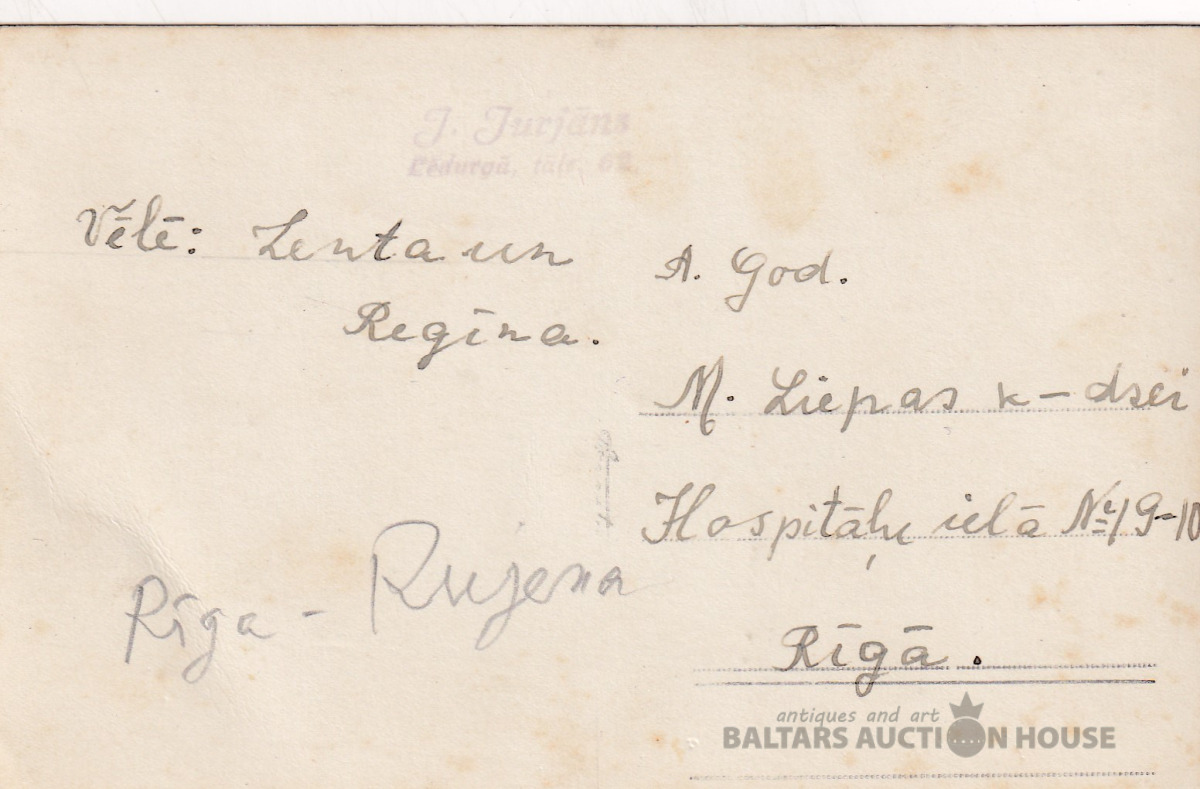 J. Jurjāns
Lēdurgā, tālr. 62
Vēlē: Zenta un
Regīna.
A. God.
M. Liepas k-dzei
Hospitāļu ielā № 19-10
Rīgā.
Rīga - Rujena
antiques and art
BALTARS AUCTION HOUSE